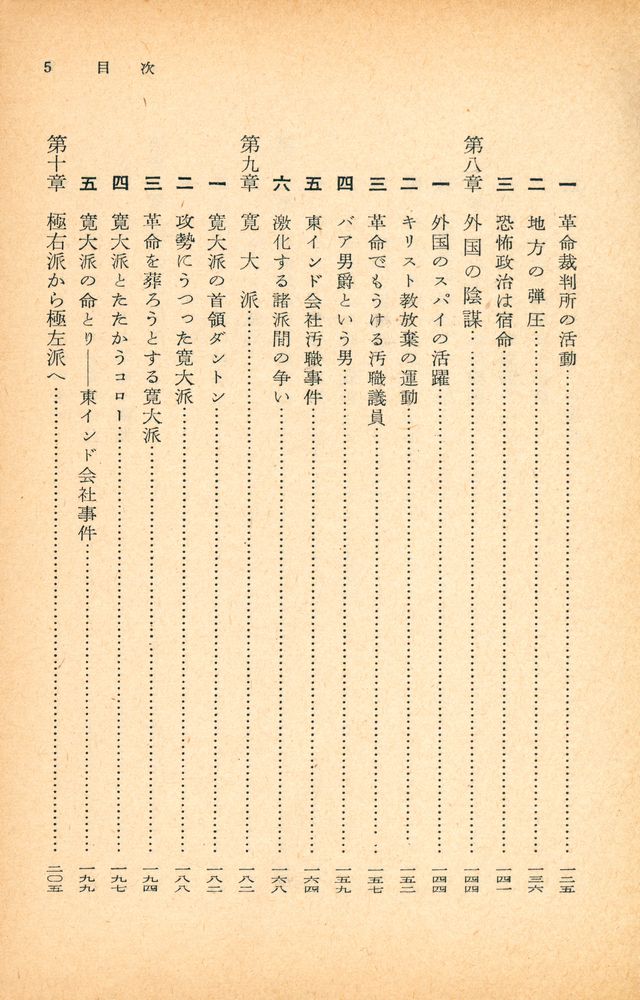 5 目次
一 革命裁判所の活動……一二五
二 地方の弾圧……一三六
三 恐怖政治は宿命……一四一
第八章 外国の陰謀……一四四
一 外国のスパイの活躍……一四四
二 キリスト教放棄の運動……一五二
三 革命でもうける汚職議員……一五七
四 バア男爵という男……一五九
五 東インド会社汚職事件……一六四
六 激化する諸派間の争い……一六八
第九章 寛大派……一八二
一 寛大派の首領ダントン……一八二
二 攻勢にうつった寛大派……一八八
三 革命を葬ろうとする寛大派……一九四
四 寛大派とたたかうコロー……一九七
五 寛大派の命とり――東インド会社事件……一九九
第十章 極右派から極左派へ……二〇五